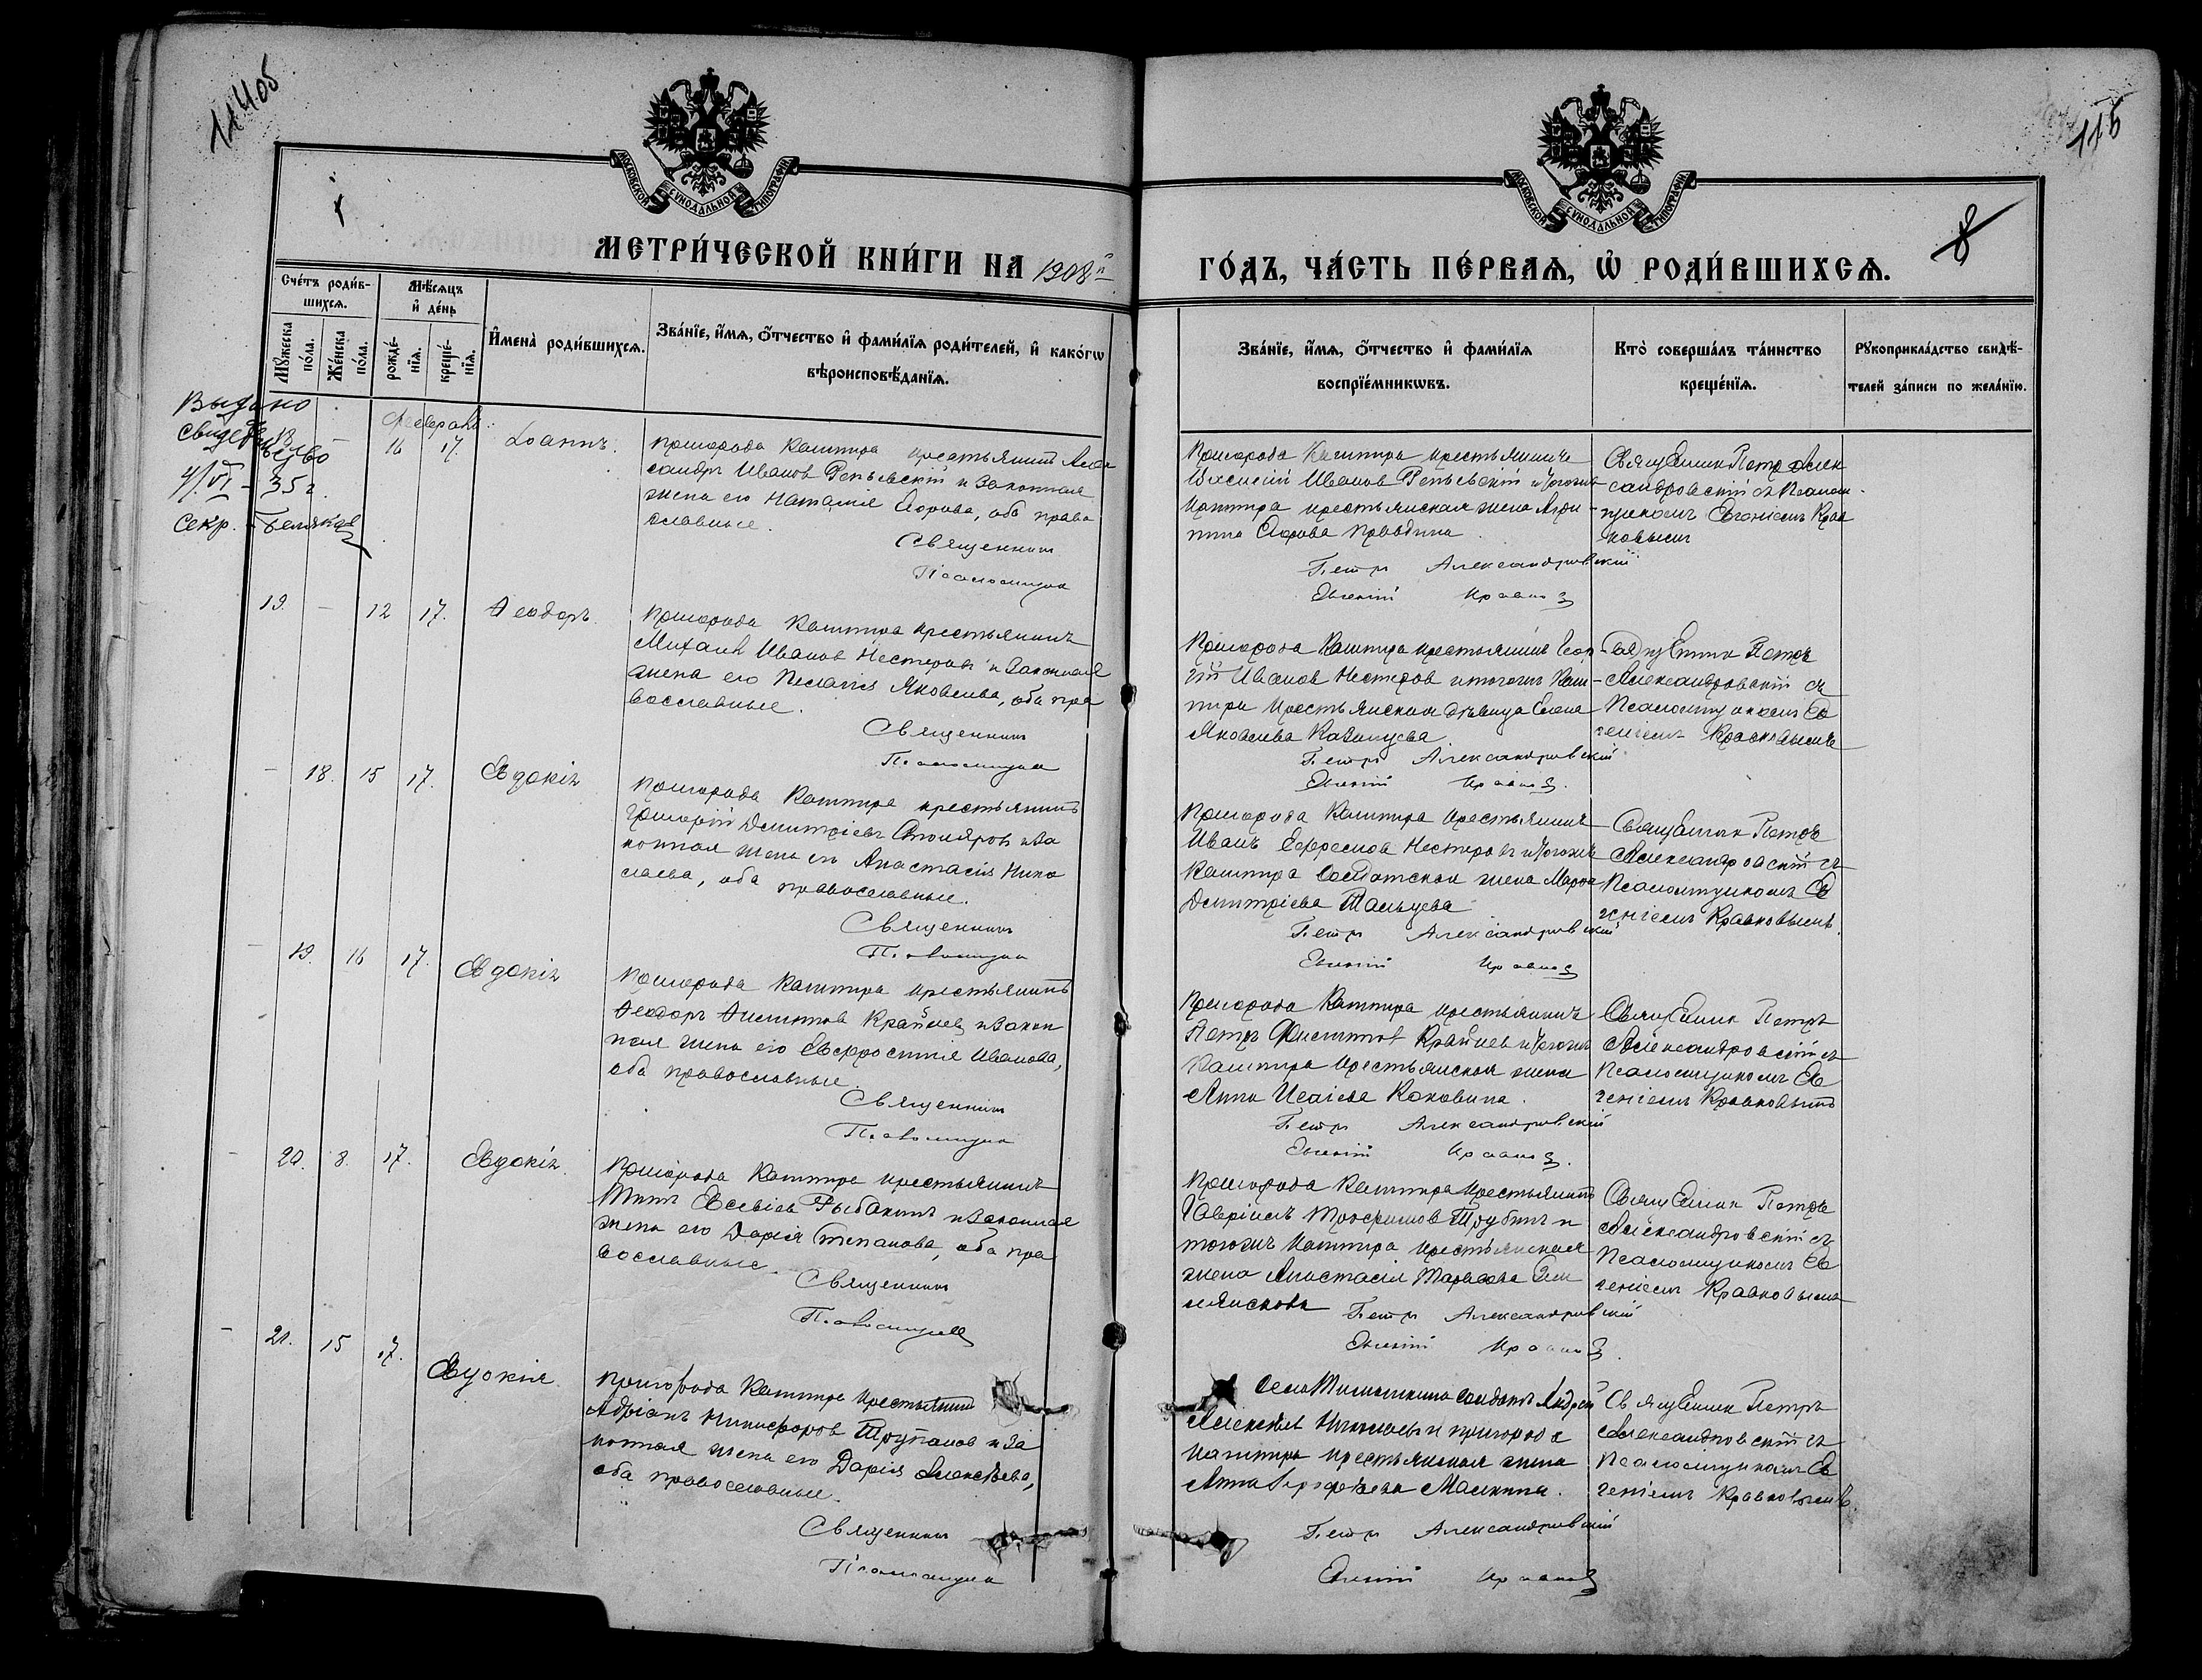 114об
115
8
МОСКОВСКОЙ СѴНОДАЛЬНОЙ ТИПОГРАФІИ
МОСКОВСКОЙ СѴНОДАЛЬНОЙ ТИПОГРАФІИ
МЕТРИ́ЧЕСКОЙ КНИ́ГИ НА 1908й
ГО́ДЪ, ЧА́СТЬ ПЕ́РВАЯ, Ѽ РОДИ́ВШИХСЯ.
Сче́тъ роди́в-
шихся.
Мꙋжеска по́ла.
Же́нска по́ла.
Мѣ́сяцъ
и҆ де́нь
рожде́-
нїя.
креще́-
нїя.
И҆мена̀ роди́вшихся.
Зва́нїе, и҆́мя, ѻ҆́тчество и҆ фами́лїя роди́телей, и҆ како́гѡ
вѣроисповѣ́данїя.
Зва́нїе, и҆́мя, ѻ҆́тчество и҆ фами́лїя
воспрїе́мникѡвъ.
Кто̀ соверша́лъ та́инство
креще́нїя.
Рꙋкоприкла́дство свидѣ́-
телей за́писи по жела́нїю.
Выдано
свидетельство
4/VI - 35 г.
секр.
Февраль
18 – 16 17. Іоаннъ.
Пригорода Каштира крестьянинъ Алек
сандръ Иванов Репьевскій и законная
жена его Наталия, оба право
славные.
Священникъ
Псаломщикъ
Пригорода Каштира крестьянинъ
Иванов Репьевскій и тогожъ
Каштира крестьянская жена
Правдина
Петръ Александровскій
Евгеній
Священникъ Петръ Алек
сандровскій съ Псалом-
щикомъ Евгеніемъ
19. – 12 17. Ѳеодоръ.
Пригорода Каштира крестьянинъ
Михаилъ Иванов Нестеровъ и законная
жена его Пелагия Яковлева, оба пра
вославные.
Священникъ
Псаломщикъ
Пригорода Каштира крестьянинъ Геор
гій Иванов Нестеров и тогожъ Каш-
тира крестьянская дѣвица Елена
Яковлева Казанцева
Петръ Александровскій
Евгеній
Священникъ Петръ
Александровскій съ
Псаломщикомъ Ев
геніемъ
– 18. 15 17. Евдокія
Пригорода Каштира крестьянинъ
Григорій Дмитріевъ Столяровъ и за
конная жена его Анастасія Нико
лаева, оба православные.
Священникъ
Псаломщикъ
Пригорода Каштира крестьянинъ
Иванъ Ефремовъ Нестеровъ и тогожъ
Каштира солдатская жена Марѳа
Дмитріева Тальцева
Петръ Александровскій
Евгеній
Священникъ Петръ
Александровскій съ
Псаломщикомъ Ев
геніемъ
– 19. 16 17. Евдокія
Пригорода Каштира крестьянинъ
Ѳеодоръ Крайневъ и закон
ная жена его Евфросинія Иванова,
оба православные.
Священникъ
Псаломщикъ
Пригорода Каштира крестьянинъ
Петръ Крайневъ и тогожъ
Каштира крестьянская жена
Анна Коковина.
Петръ Александровскій
Евгеній
Священникъ Петръ
Александровскій съ
Псаломщикомъ Ев
геніемъ
– 20. 8. 17. Евдокія.
Пригорода Каштира крестьянинъ
Титъ Евсевіев Рыбакинъ и законная
жена его Дарія Степанова, оба пра
вославные.
Священникъ
Псаломщикъ
Пригорода Каштира крестьянинъ
Гавріилъ Трофимов Трубинъ и
тогожъ Каштира крестьянская
жена Анастасія Тарасова
Петръ Александровскій
Евгеній
Священникъ Петръ
Александровскій съ
Псаломщикомъ Ев
геніемъ
– 21. 15 17. Евдокия
Пригорода Каштира крестьянинъ
Адріанъ Никифоровъ и за
конная жена его Дарія Алексѣева,
оба православные.
Священникъ
Псаломщикъ
Села солдатъ Андрей
Алексѣев и пригорода
Каштира крестьянская жена
Анна Малкина.
Петръ Александровскій
Евгеній
Священникъ Петръ
Александровскій съ
Псаломщикомъ Ев
геніемъ